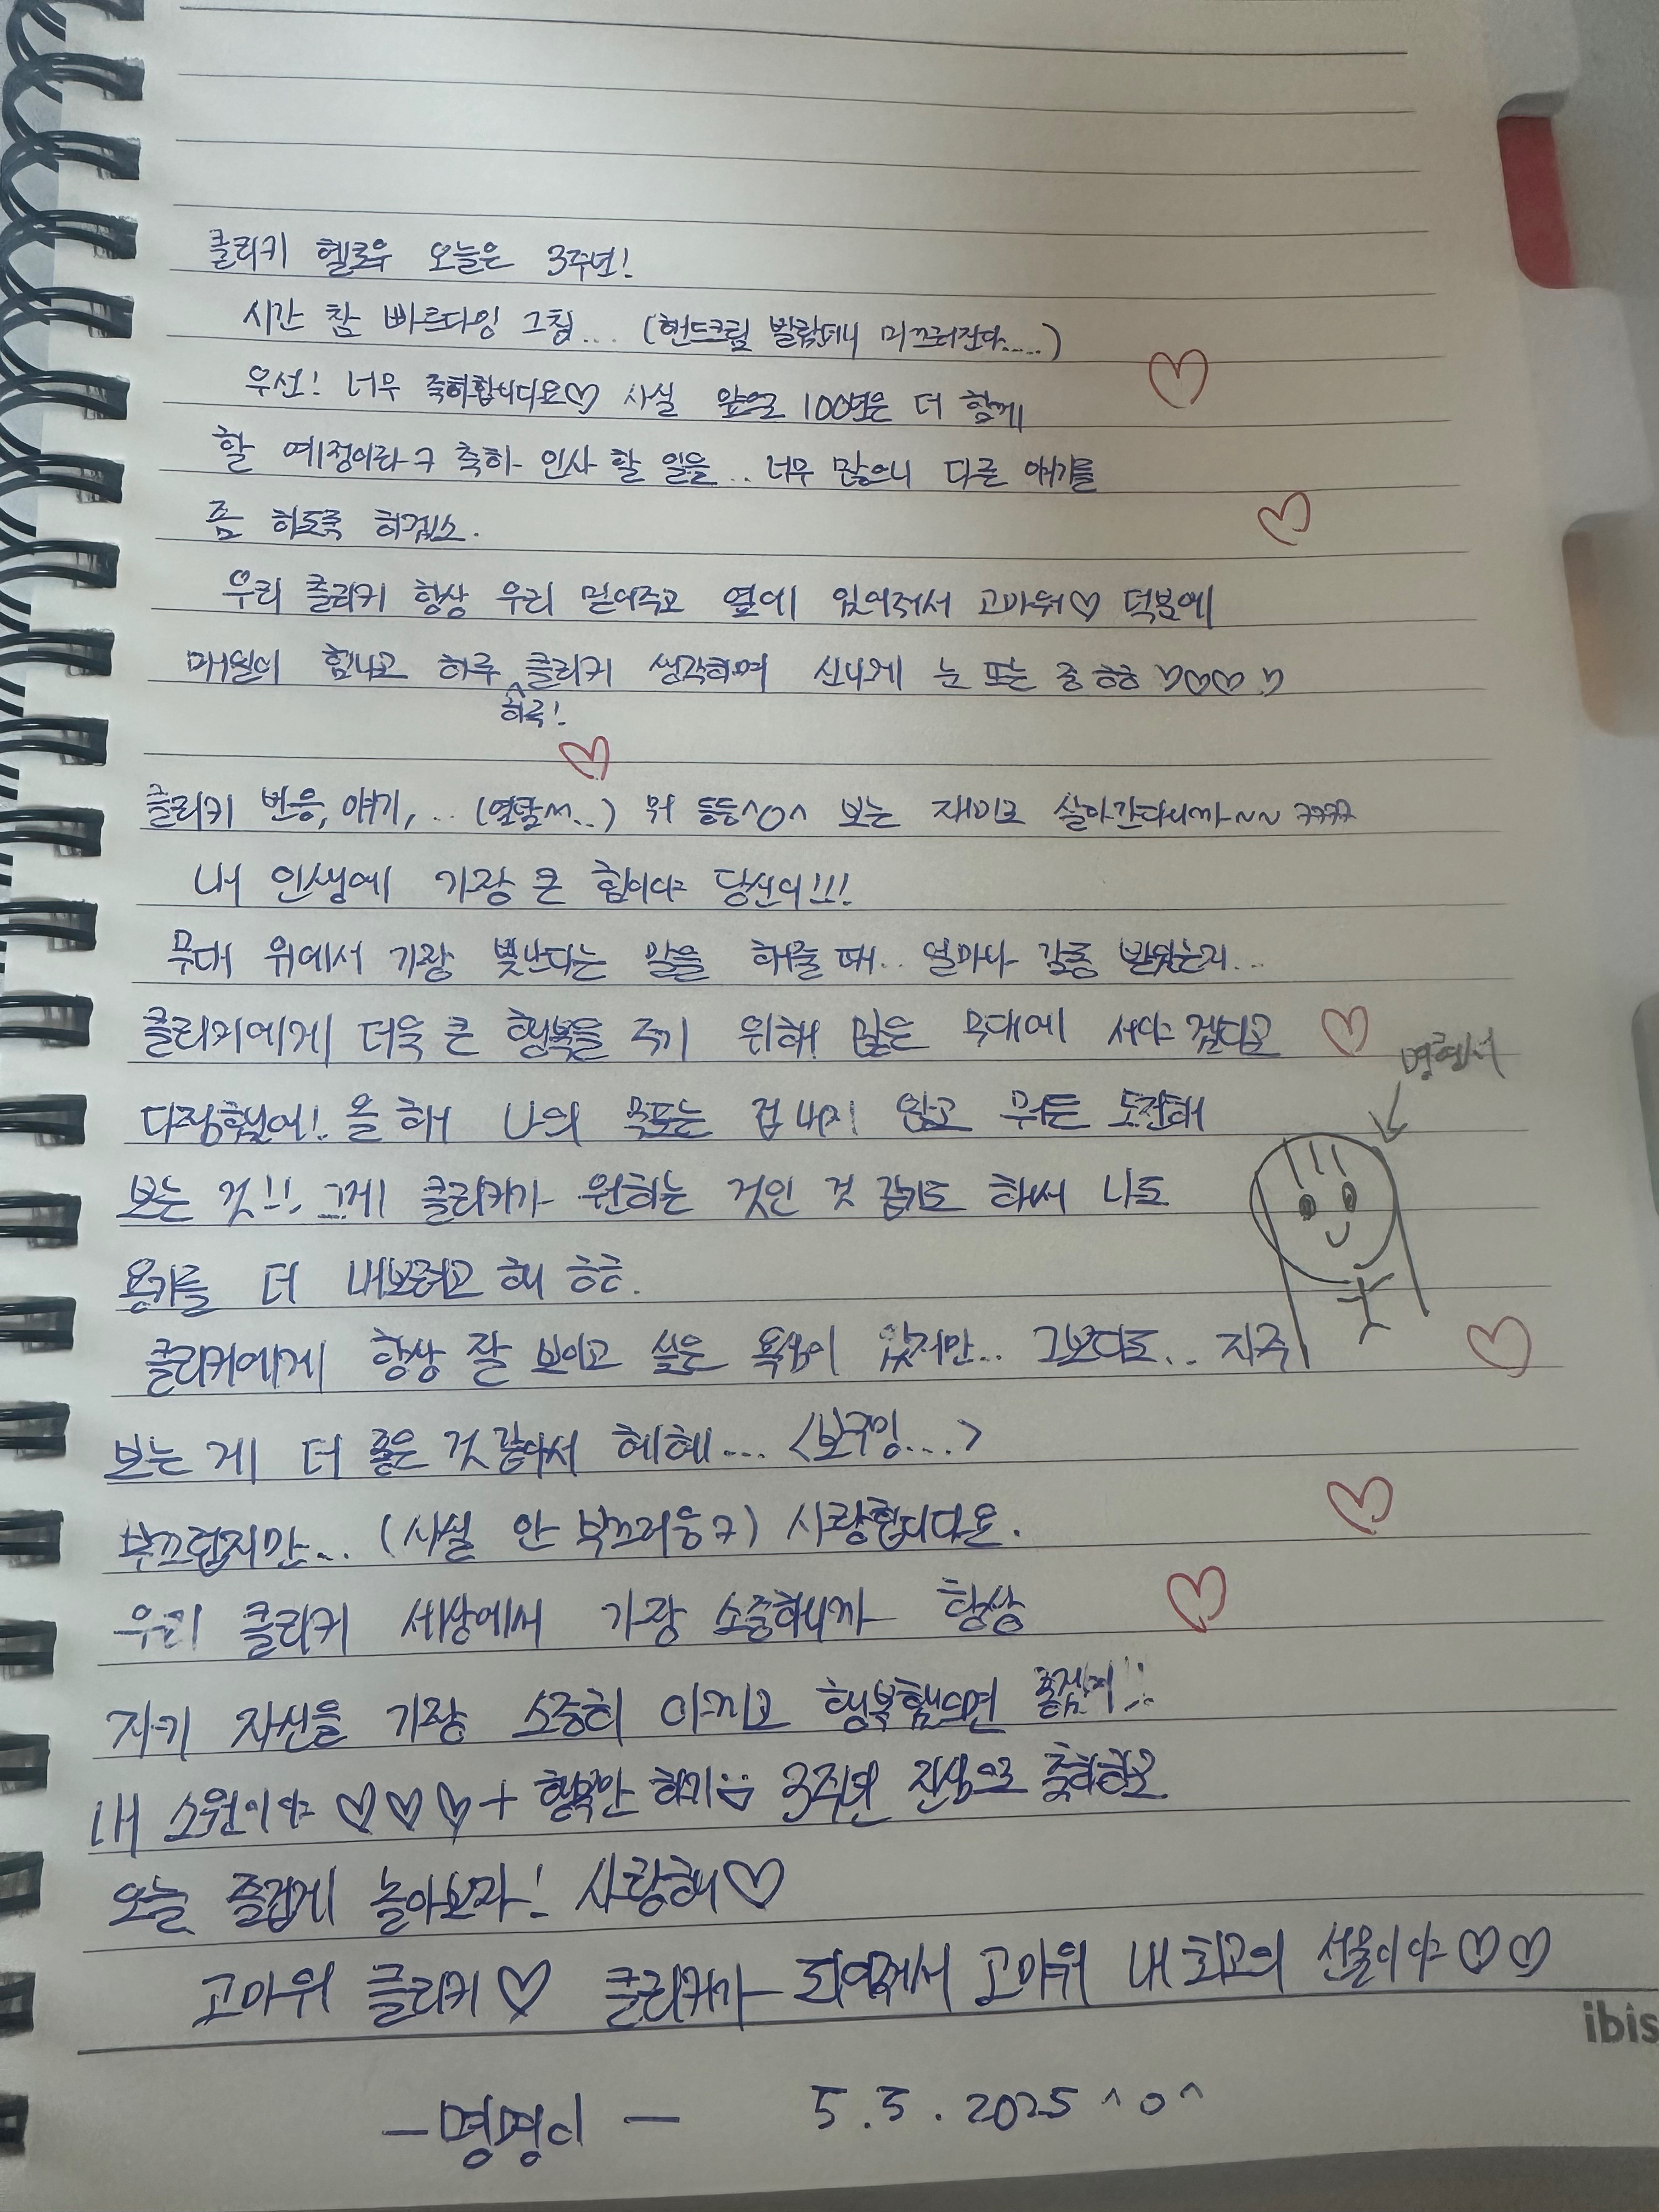 클리커 헬로우 오늘은 3주년!
시간 참 빠르다잉 그췽... (핸드크림 발랐더니 미끄러진다.....)
우선! 너무 축하합니다요♡ 사실 앞으로 100년은 더 함께
할 예정이라ㅋ 축하 인사 할 일을.. 너무 많으니 다른 얘기를
좀 하도록 하겠소.
우리 클리커 항상 우리 믿어주고 옆에 있어줘서 고마워♡ 덕분에
매일이 힘나고 하루 클리커 생각하며 신나게 눈 뜨는 중 ㅎㅎ ♡♡♡♡
하루!
클리커 반응, 얘기, .. 뭐 등등^o^ 보는 재미로 살아간다니까~~ ㅋㅋㅋㅋ
내 인생에 가장 큰 힘이야 당신이!!!
무대 위에서 가장 빛난다는 말을 해줄 때.. 얼마나 감동 받았는지...
클리커에게 더욱 큰 행복을 주기 위해 많은 무대에 서야 겠다고
명형서
다짐했어! 올 해 나의 목표는 겁 내지 않고 뭐든 도전해
보는 것!! 그게 클리커가 원하는 것인 것 같기도 해서 나도
용기를 더 내보려고 해 ㅎㅎ.
클리커에게 항상 잘 보이고 싶은 욕심이 있지만... 그보다도.. 자주
보는 게 더 좋은 것 같아서 헤헤... <보구밍...>
부끄럽지만... (사실 안 부끄러웅ㅋ) 사랑합니다요.
우리 클리커 세상에서 가장 소중하니까 항상
자기 자신을 가장 소중히 아끼고 행복했으면 좋겠어!!
내 소원이야 ♡♡♡ + 행복만 하기 3주년 진심으로 축하하고
오늘 즐겁게 놀아보자! 사랑해♡
고마워 클리커♡ 클리커가 되어줘서 고마워 내 최고의 선물이야♡♡
ibis
-명명이- 5.5.2025 ^o^